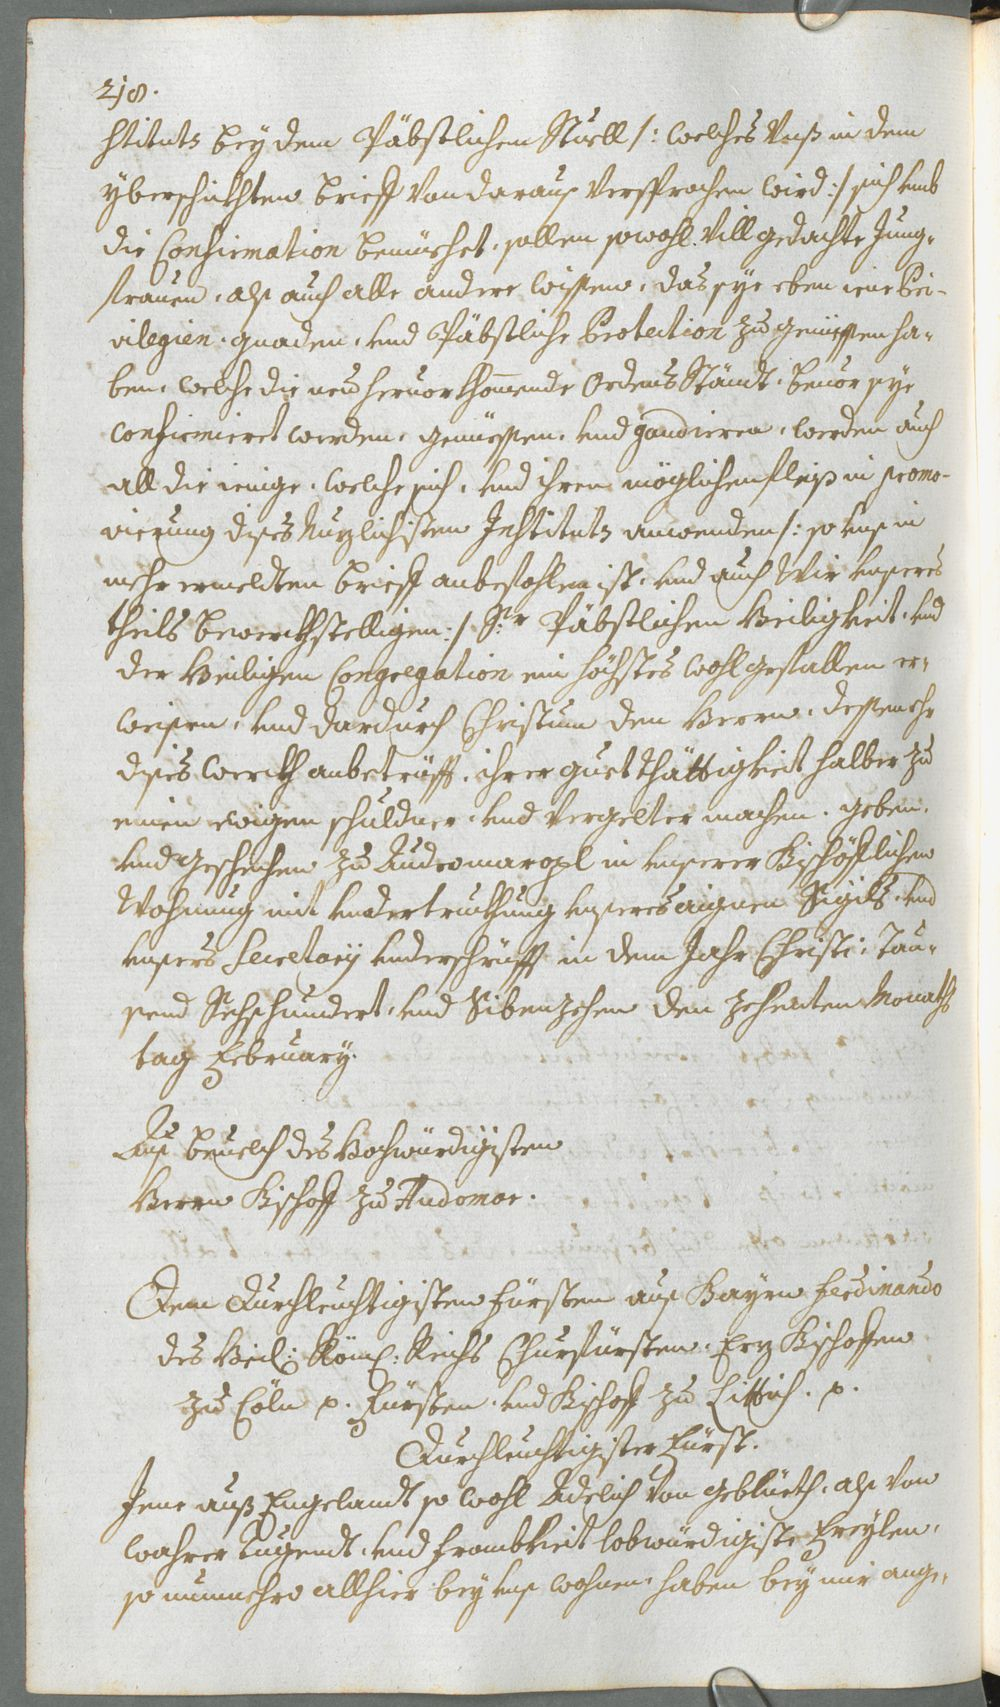 218.
stituts bey dem Päbstlichen Stuell /: welches Unß in dem
yberschickhten brieff von darauß versprochen wird :/ sich umb
die Confirmation bemüehet, sollen sowohl vill gedachte Jung-
frauen, alß auch alle andere wissen, das sye eben iene Pri-
vilegien, gnaden, und Päbstliche Protection zu geniessen ha-
ben, welche die neu heruorkhomende Ordens Ständt, beuor sye
confirmieret werden, geniessen, und gaudieren, werden auch
all die ienige, welche sich, und ihren möglichen fleiß in promo-
vierung dises Nuzlichisten Instituts anwenden /: so unß in
mehr ermeldten brieff anbefohlen ist, und auch Wir unsers
theils bewerckhstelligen :/ Sr. Päbstlichen Heiligkheit, und
der Heiligen Congregation ein höchstes wohlgefallen er-
weisen, und dardurch Christum den Herrn, desto mehr
dises werckh anbetröfft, ihrer guetthättigkheit halber zu
einen ewigen schuldner, und vergelter machen. geben,
und geschechen zu Audomaropl in unserer Bischöfflichen
Wohnung mit undertruckhung unsers aignen Sigils, und
unsers Secretary underschrüfft in dem Jahr Christi, Tau-
send Sechshundert, und Sibenzehen den zehenten Monaths
tag February.
Auß beuelch des Hochwürdigisten
Herrn Bischoff zu Audomar.
Dem Durchleuchtigisten Fürsten auß Bayrn Ferdinando
des Heil: Röm: Reichs Churfürsten, Erz Bischoffen
zu Cöln p. Fürsten, und Bischoff zu Littich. p.
Durchleuchtigister Fürst.
Jene auß Engelandt so wohl Adelich von geblüeth, alß von
wahrer Tugendt, und frombkheit lobwürdigiste Freylen,
so nunmehro allhier bey unß wohnen, haben bey mir ange-